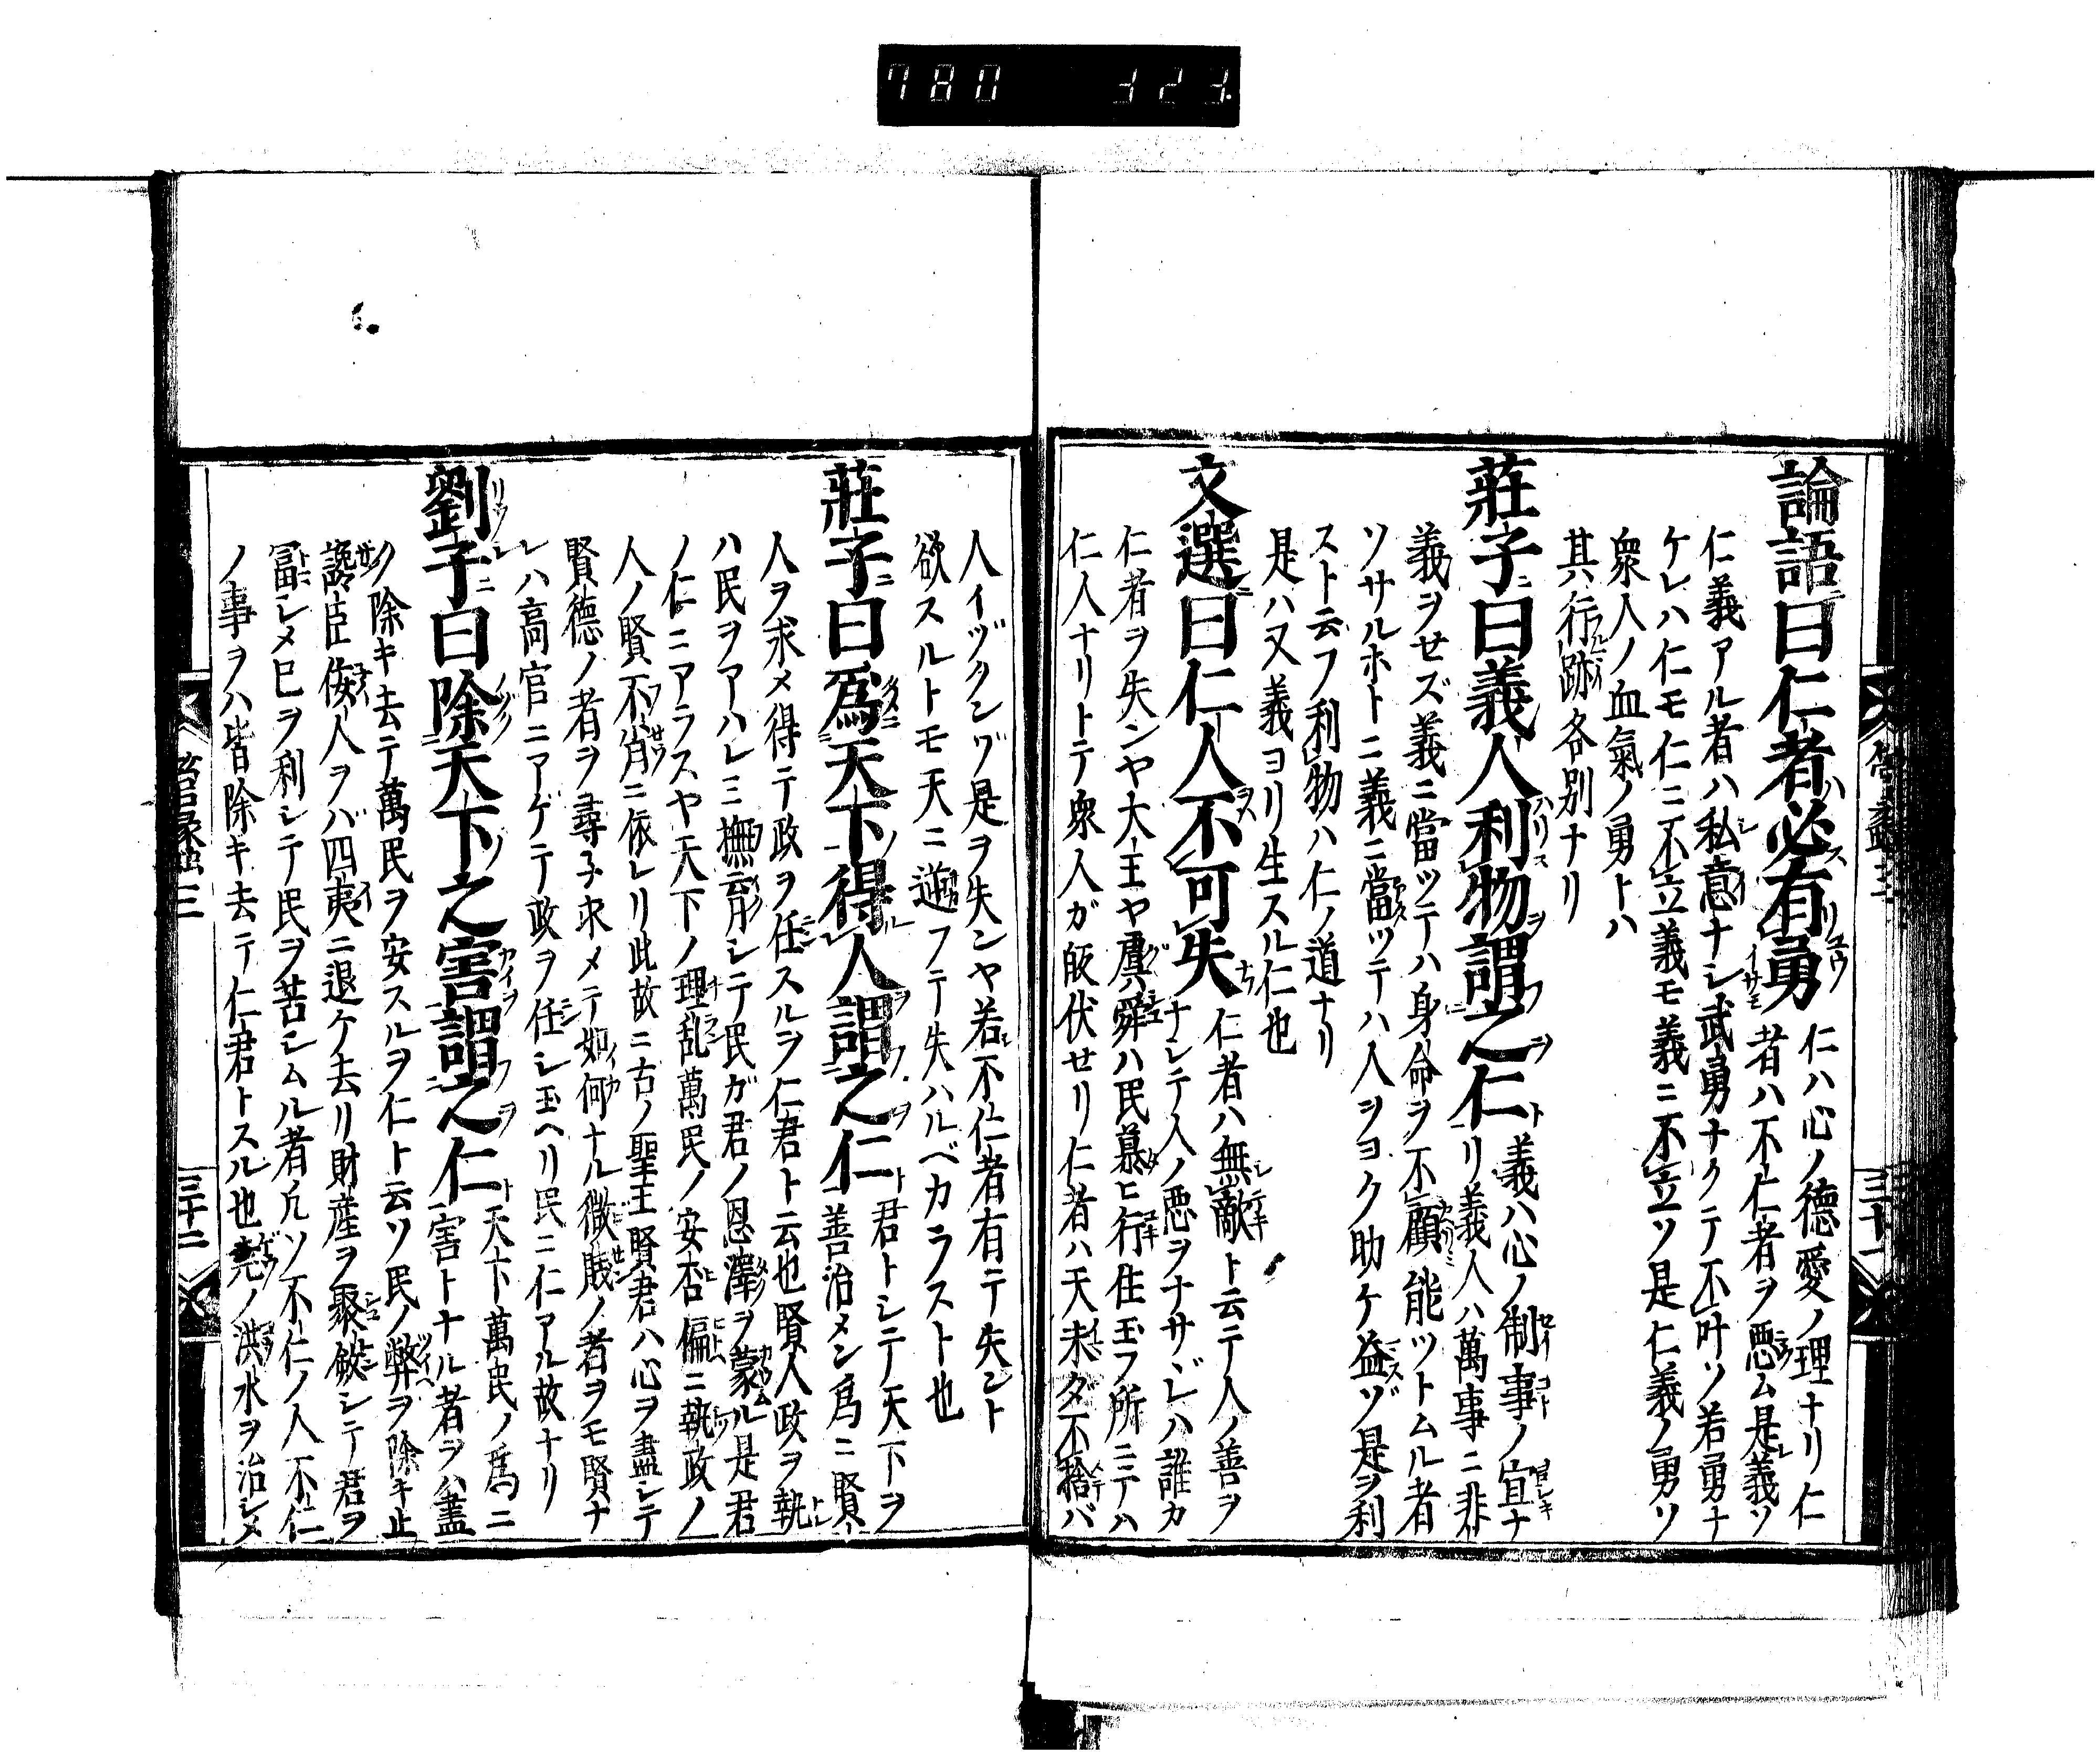 780 323
論語曰仁者必有勇 仁ハ心ノ德愛ノ理ナリ仁
者ハ不仁者ヲ悪ム是義ソ
仁義アル者ハ私意ナシ武勇ナクテ不叶ソ若勇ナ
ケレハ仁モ仁ニ不立義モ義ニ不立ソ是仁義ノ勇ソ
衆人ノ血氣ノ勇トハ
其行跡各別ナリ
莊子曰義人利物謂之仁 義ハ心ノ制事ノ宜ナ
リ義人ハ萬事ニ非
義ヲせズ義ニ當ツテハ身命ヲ不顧能ツトムル者
ソサルホトニ義ニ當ツテハ人ヲヨク助ケ益ゾ是ヲ利
スト云フ利物ハ仁ノ道ナリ
是ハ又義ヨリ生スル仁也
文選曰仁人不可失 仁者ハ無敵ト云テ人ノ善ヲ
ナシテ人ノ悪ヲナサヾレハ誰カ
仁者ヲ失ンヤ大王ヤ虞舜ハ民慕ヒ行住玉フ所ニテハ
仁人ナリトテ衆人ガ皈伏せリ仁者ハ天未ダ不捨バ
人イヅクンゾ是ヲ失ンヤ若不仁者有テ失ント
欲スルトモ天ニ逆フテ失ハルベカラスト也
莊子曰爲天下得人謂之仁 君トシテ天下ヲ
善治メン爲ニ賢
人ヲ求メ得テ政ヲ任スルヲ仁君ト云也賢人政ヲ執
ハ民ヲアハレミ撫育シテ民ガ君ノ恩澤ヲ蒙ル是君
ノ仁ニアラスヤ天下ノ理乱萬民ノ安否偏ニ執政ノ
人ノ賢不肖ニ依レリ此故ニ古ノ聖王賢君ハ心ヲ盡シテ
賢德ノ者ヲ尋子求メテ如何ナル微賎ノ者ヲモ賢ナ
レハ高官ニアゲテ政ヲ任シ玉ヘリ民ニ仁アル故ナリ
劉子曰除天下之害謂之仁 天下萬民ノ爲ニ
害トナル者ヲハ盡
ク除キ去テ萬民ヲ安スルヲ仁ト云ソ民ノ弊ヲ除キ止
讒臣佞人ヲバ四夷ニ退ケ去リ財産ヲ聚斂シテ君ヲ
冨シメ已ヲ利シテ民ヲ苦シムル者凢ソ不仁ノ人不仁
ノ事ヲハ皆除キ去テ仁君トスル也堯ノ洪水ヲ治シメ